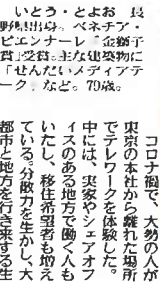 いとう・とよお　長
野県出身。ベネチア・
ビエンナーレ「金獅子
賞」受賞。主な建築物に
「せんだいメディアテ
ーク」など。79歳。
コロナ禍で、大勢の人が
東京の本社から離れた場所
でテレワークを体験した。
中には、実家やシェアオフ
ィスのある地方で働く人も
いたし、移住希望者も増え
ている。分散力を生かし、大
都市と地方を行き来する生